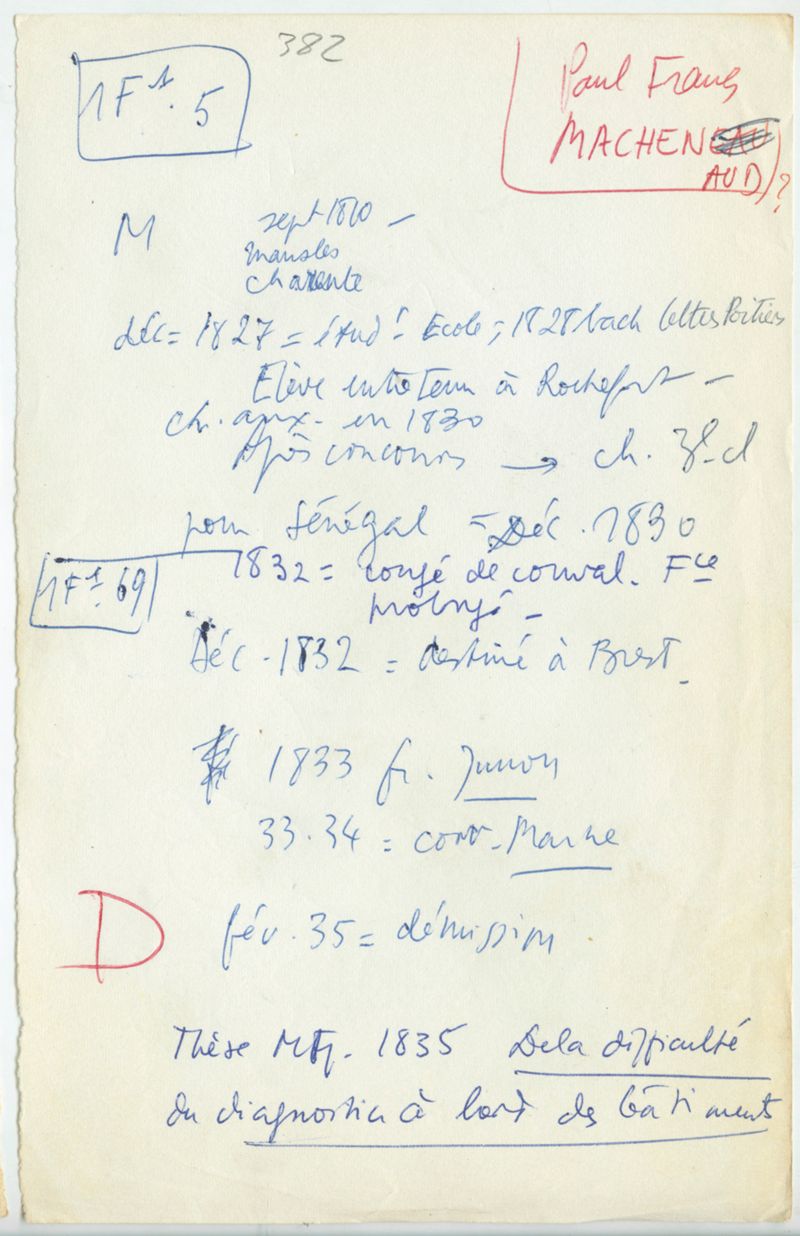 382
1F¹. 5
Paul Franç
MACHENEAU
AUD)?
M
sept 1810 –
mansles
charente
déc = 1827 = étud! Ecole ; 1828 bach lettes Poitiers
Elève entretenu à Rochefort –
ch. aux. en 1830
Après concours → ch. 3e cl
pour Sénégal = Déc. 1830
1F¹. 69
1832 = congé de conval. Fce
prolongé –
Déc. 1832 = destiné à Brest –
1833 fr. Junon
33.34 = corv. Marne
D
fév. 35 = démission
Thèse 1835 De la difficulté
du diagnostic à bord des bâtiments